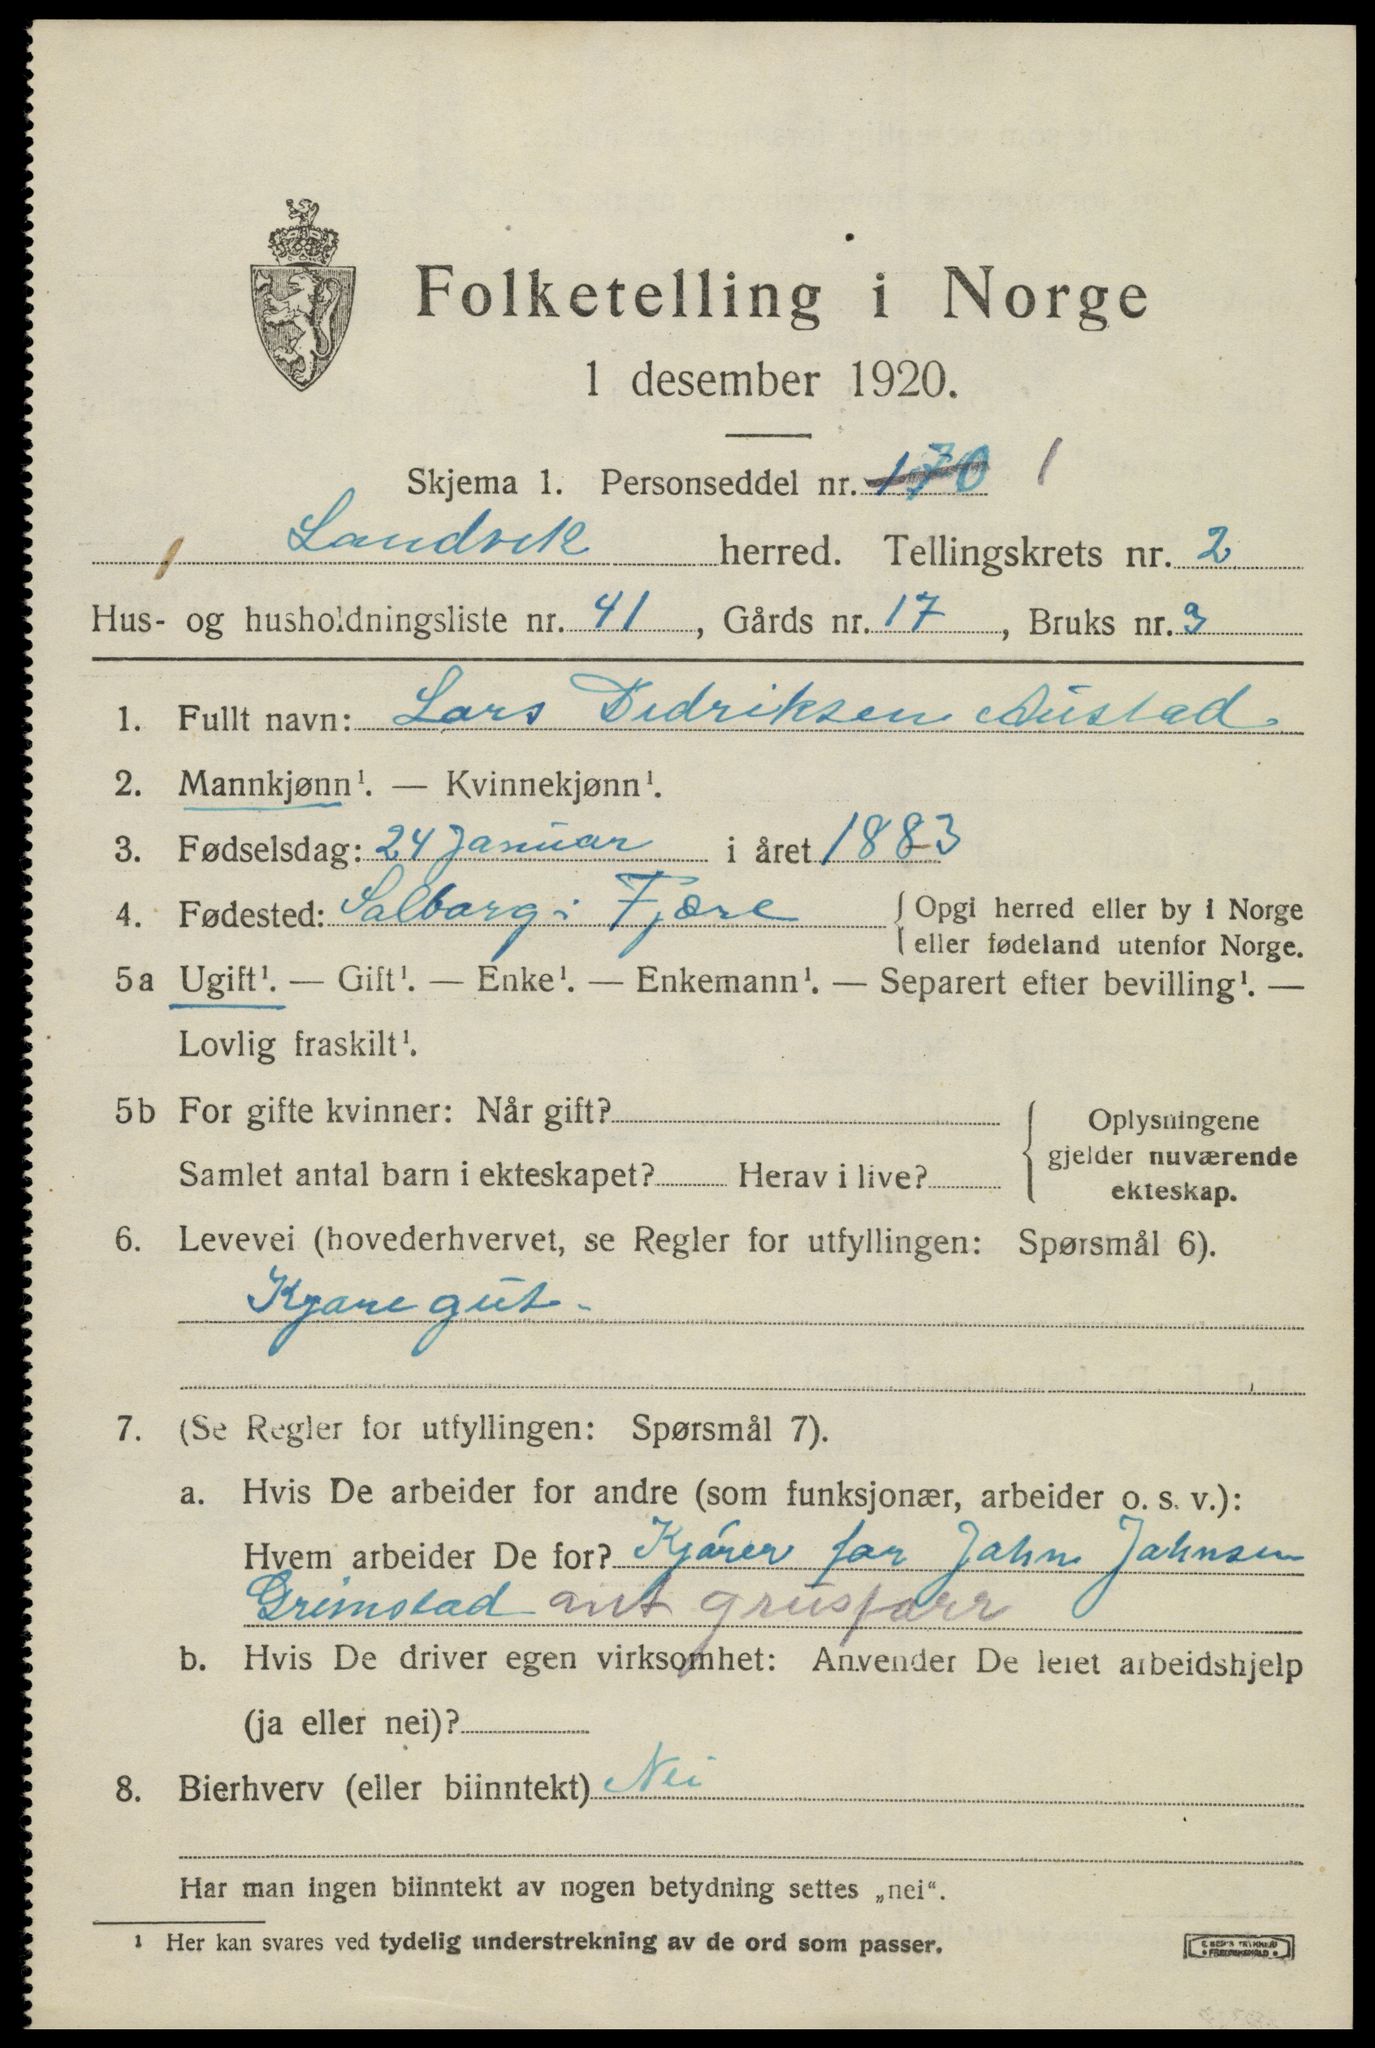 Folketelling i Norge
1 desember 1920.
Skjema 1. Personseddel nr. 170 1
Landvik herred. Tellingskrets nr. 2
Hus- og husholdningsliste nr. 41, Gårds nr. 17, Bruks nr. 3
1. Fullt navn: Lars Didriksen Austad
2. Mannkjønn¹. — Kvinnekjønn¹.
3. Fødselsdag: 24 Januar i året 1883
4. Fødested: Salborg i Fjære { Opgi herred eller by i Norge
{ eller fødeland utenfor Norge.
5a Ugift¹. — Gift¹. — Enke¹. — Enkemann¹. — Separert efter bevilling¹. —
Lovlig fraskilt¹.
5b For gifte kvinner: Når gift?
Samlet antal barn i ekteskapet? Herav i live?
Oplysningene
gjelder nuværende
ekteskap.
6. Levevei (hovederhvervet, se Regler for utfyllingen: Spørsmål 6).
Kjøregut.
7. (Se Regler for utfyllingen: Spørsmål 7).
a. Hvis De arbeider for andre (som funksjonær, arbeider o. s. v.):
Hvem arbeider De for? Kjører for Jahn Jahnsen
Grimstad
b. Hvis De driver egen virksomhet: Anvender De leiet arbeidshjelp
(ja eller nei)?
8. Bierhverv (eller biinntekt) Nei
Har man ingen biinntekt av nogen betydning settes „nei“.
¹ Her kan svares ved tydelig understrekning av de ord som passer.